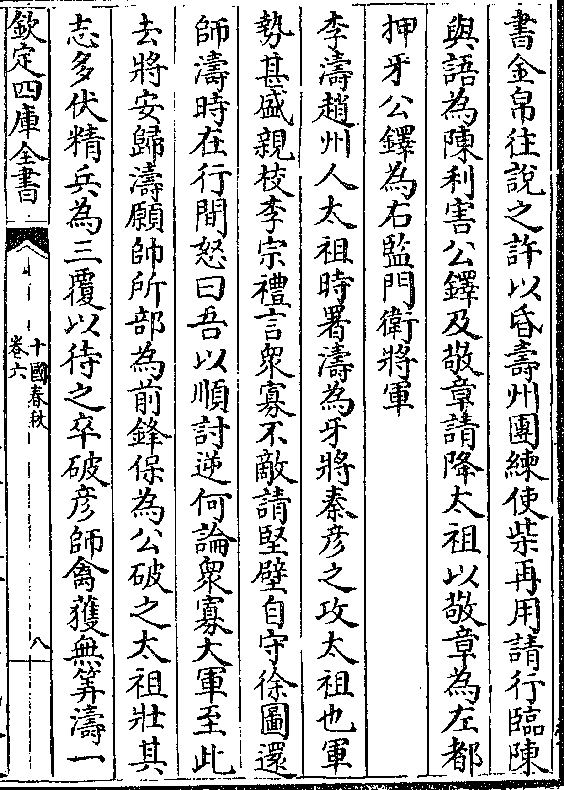 書金帛往說之許以昏壽州團練使柴再用請行臨陳
與語為陳利害公鐸及敬章請降太祖以敬章為左都
押牙公鐸為右監門衛將軍
李濤趙州人太祖時署濤為牙將秦彥之攻太祖也軍
勢甚盛親校李宗禮言衆寡不敵請堅壁自守徐圖還
師濤時在行間怒曰吾以順討逆何論衆寡大軍至此
去將安歸濤願帥所部為前鋒保為公破之太祖壯其
志多伏精兵為三覆以待之卒破彥師禽獲無筭濤一
欽定四庫全書
十國春秋
卷六
八